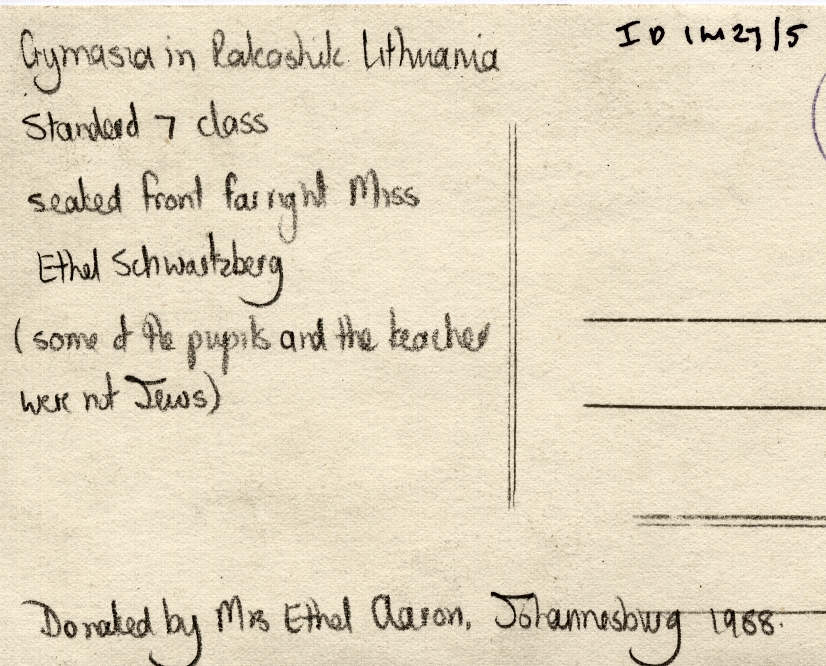 ID 1M27/5
Gymasia in Rakoshik Lithuania
Standerd 7 class
seated front far right Miss
Ethel Schwartzberg
(some of the pupils and the teacher
were not Jews)
Donated by Mrs Ethel Aaron, Johannesburg 1988.